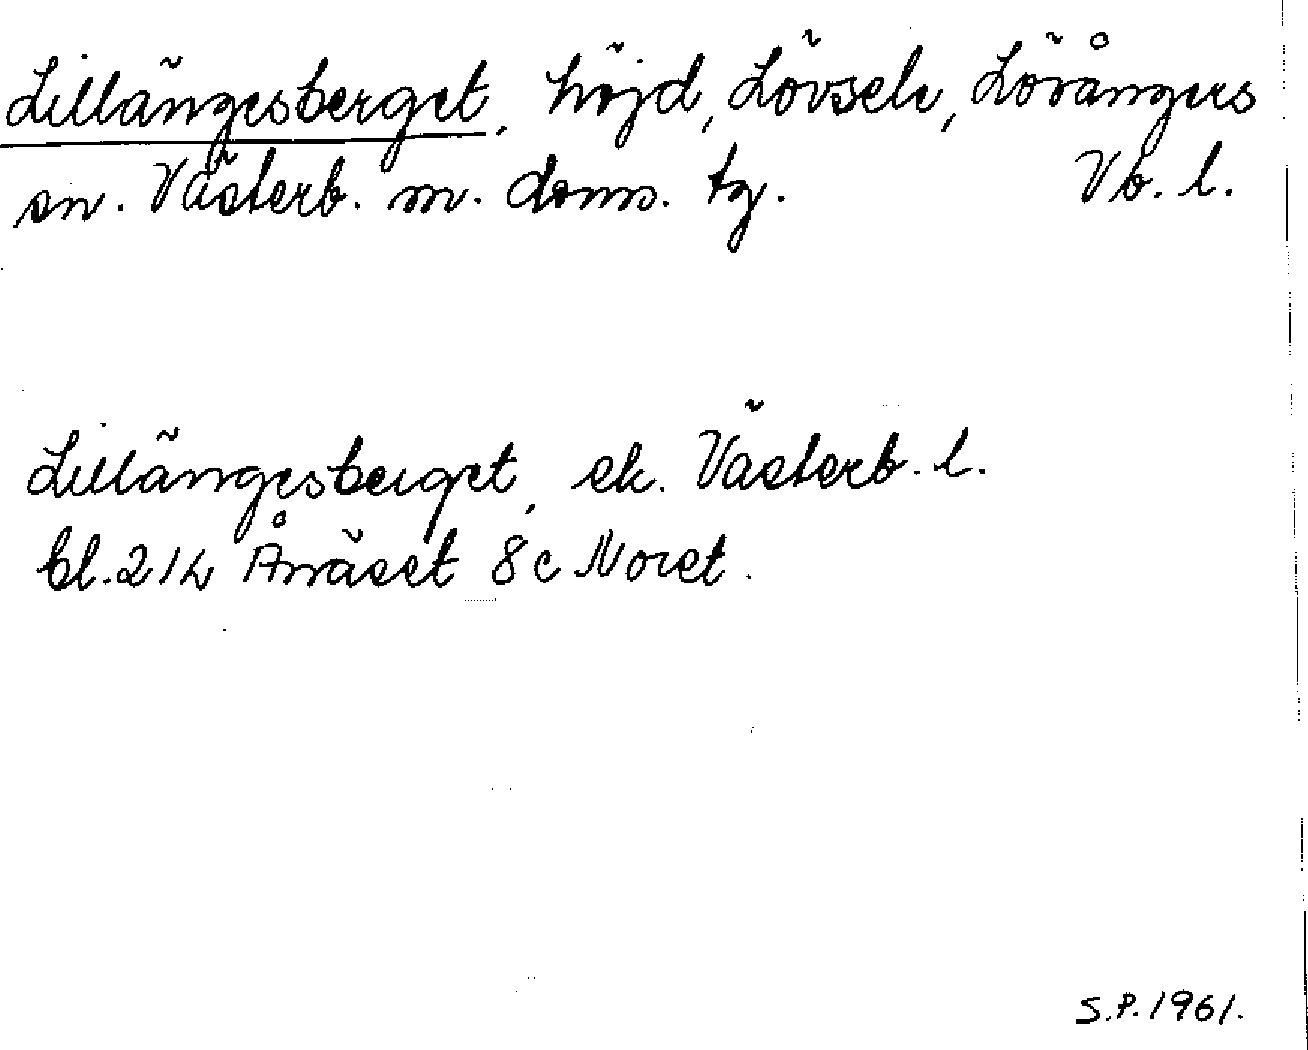 Lillängesberget, höjd, Lövsele, Lövångers
sn. Västerb. m. doms. tg. Vb. l.
Lillängesberget, ek. Västerb. l.
bl. 21L Ånäset 8c Noret.
S.P. 1961.